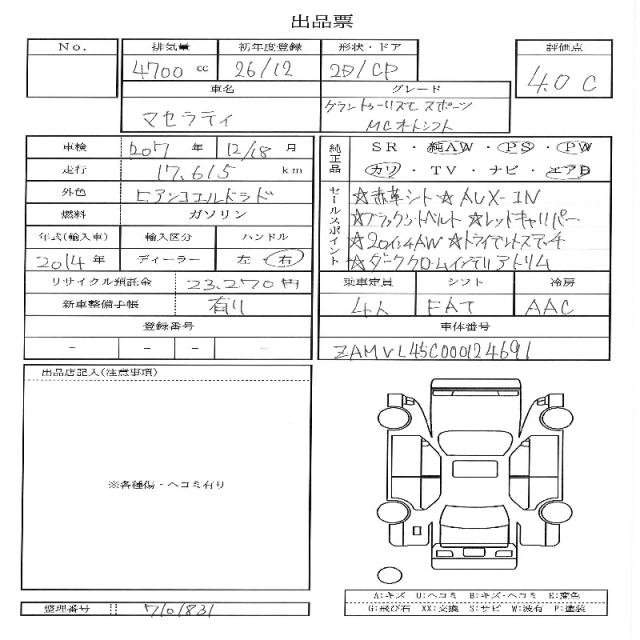 出品票
No. 排気量 初年度登録 形状・ドア 評価点
4700 cc 26/12 2D/CP 4.0 C
車名 グレード
マセラティ グラントゥーリズモ スポーツ
MCオートシフト
車検 2017 年 12/18 月
走行 17,615 km
外色 ビアンコエルドラド
燃料 ガソリン
年式(輸入車) 輸入区分 ハンドル
2014年 ディーラー 左・右
リサイクル預託金 23,270円
新車整備手帳 有り
登録番号
- - - -
純正品 SR・純AW・PS・PW
カワ・TV・ナビ・エアB
セールスポイント ☆赤革シート☆AUX-IN
☆ブラックシートベルト☆レッドキャリパー
☆20インチAW☆ドライビングスイッチ
☆ダーククロームインテリアトリム
乗車定員 シフト 冷房
4人 FAT AAC
車体番号
ZAMVL45C000124691
出品店記入(注意事項)
※各種傷・ヘコミ有り
整理番号 7101831
A:キズ U:ヘコミ B:キズ・ヘコミ E:変色
G:飛び石 XX:交換 S:サビ W:波有 P:塗装